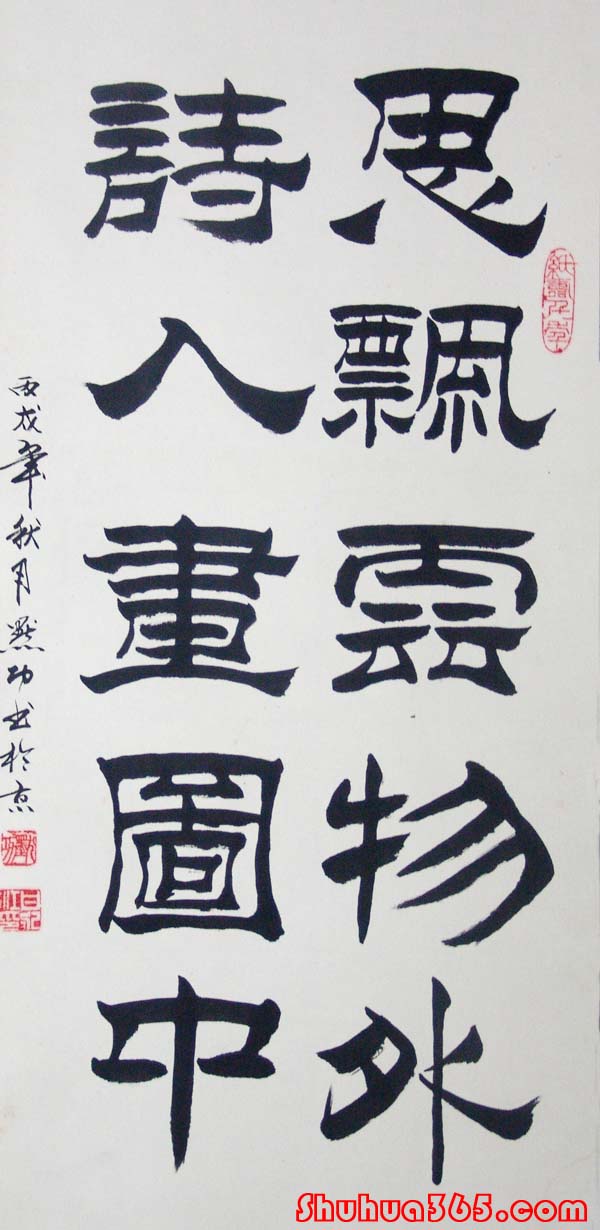 思飄雲物外
詩入畫圖中
丙戌年秋月默功书於京
纸壽千年
Shuhua365.com